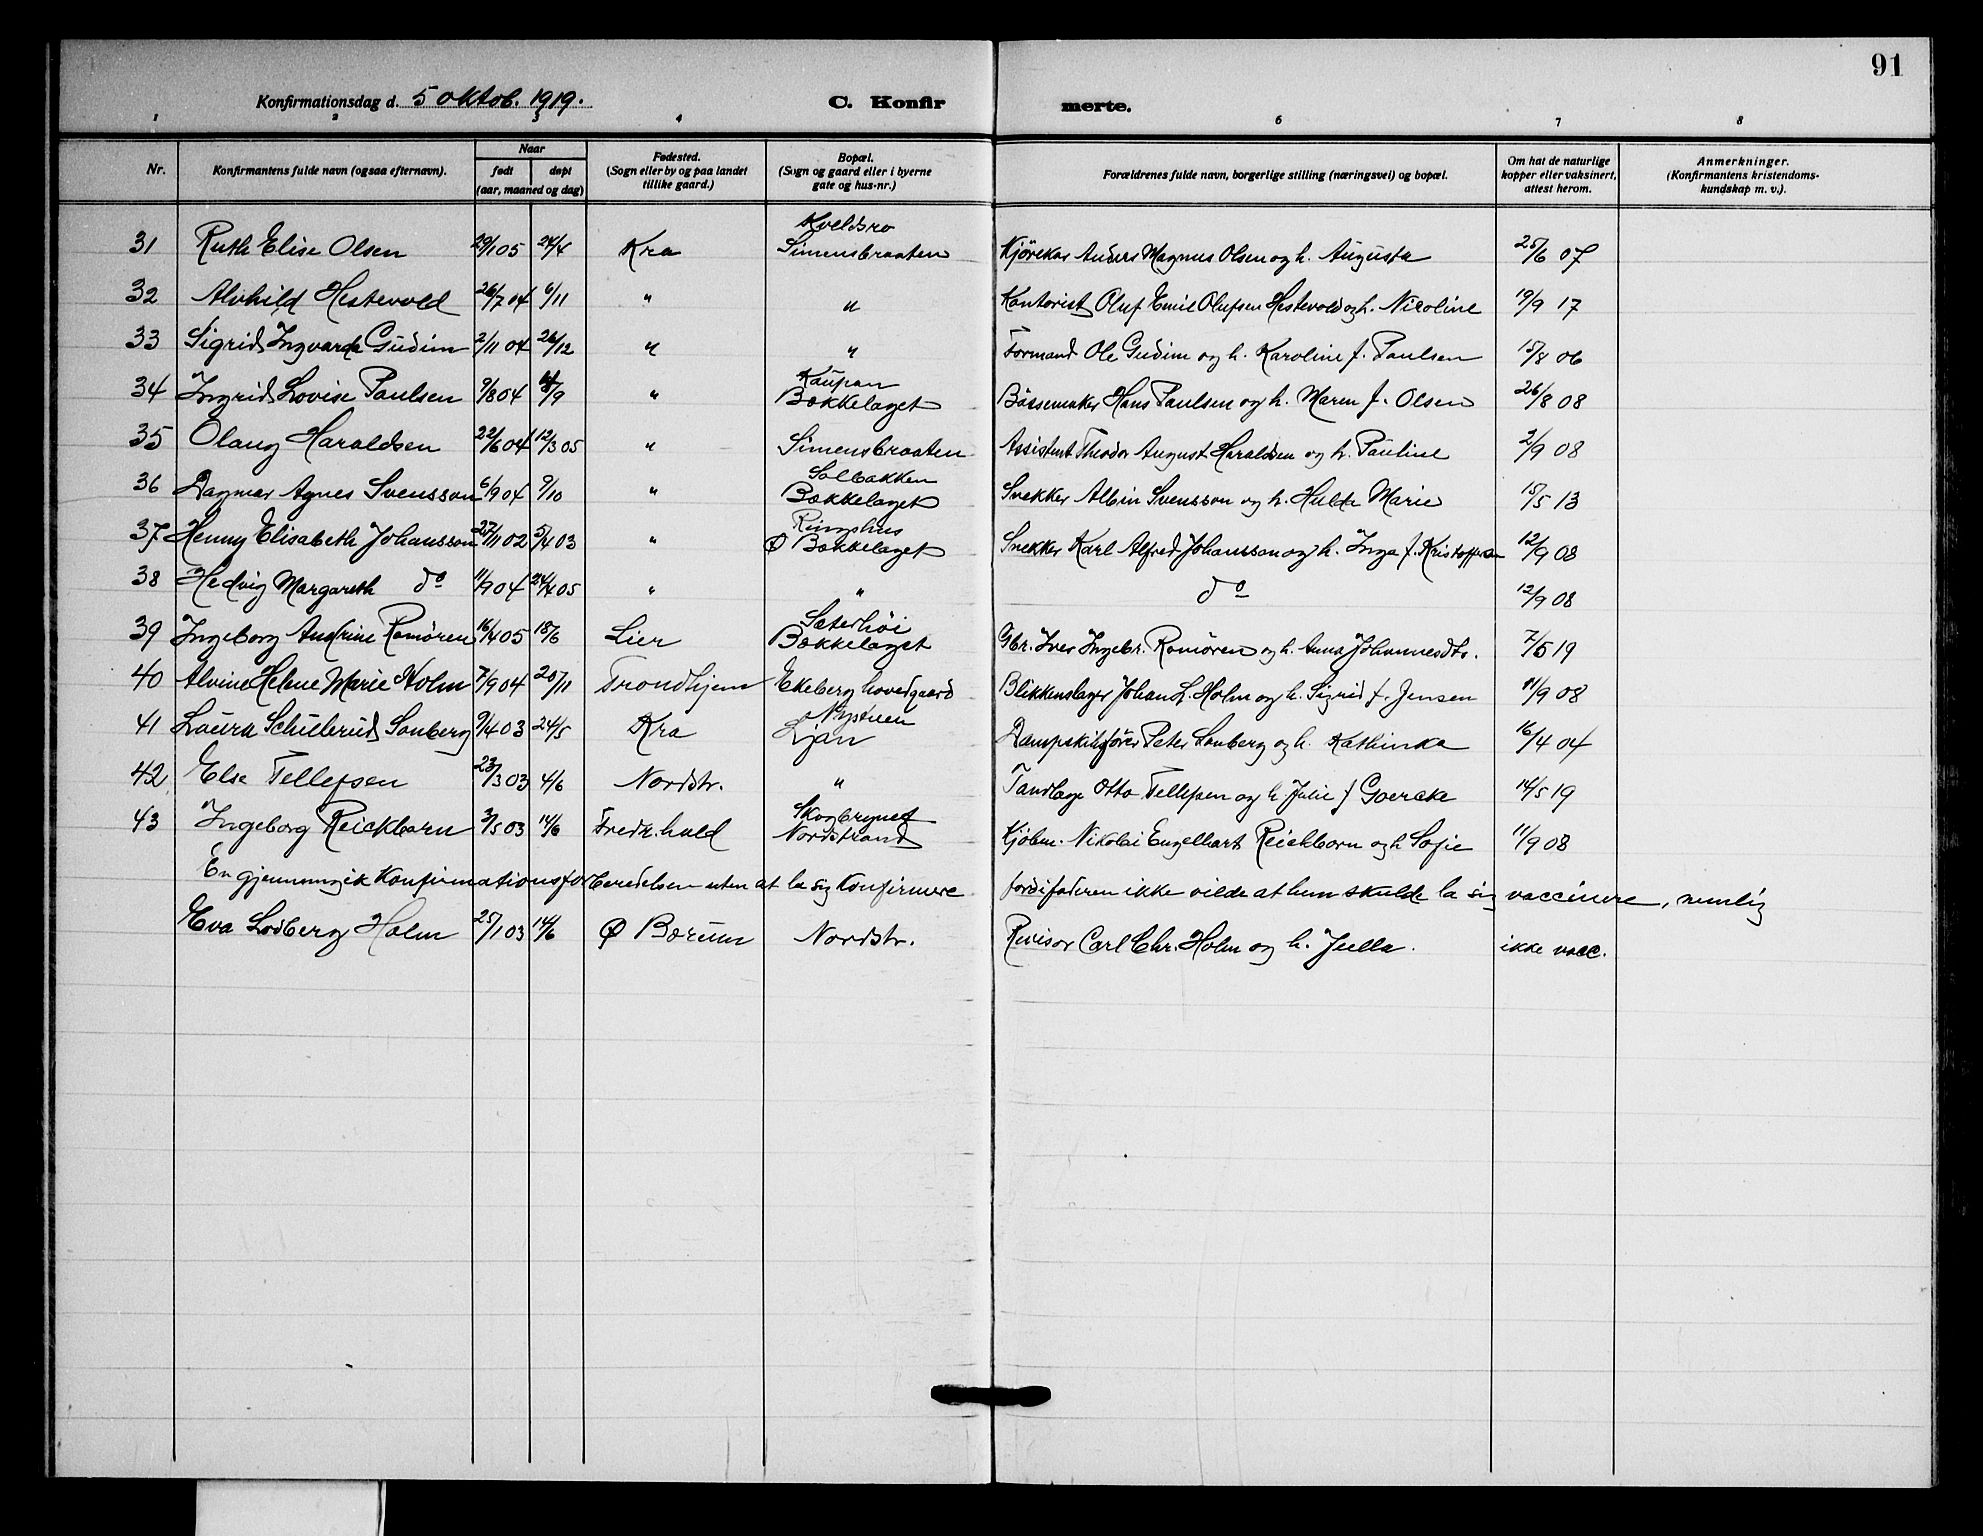 91
Konfirmationsdag d. 5 oktob. 1919.
C. Konfir merte.
1 2 3 4 6 7 8
Nr. Konfirmantens fulde navn (ogsaa efternavn). Naar født døpt (aar, maaned og dag) Fødested. (Sogn eller by og paa landet tillike gaard.) Bopæl. (Sogn og gaard eller i byerne gate og hus-nr.) Forældrenes fulde navn, borgerlige stilling (næringsvei) og bopæl. Om hat de naturlige kopper eller vaksinert, attest herom. Anmerkninger. (Konfirmantens kristendoms-kundskap m. v.).
31 Ruth Elise Olsen 29/1 05 24/4 Kra Kveldsro Simensbraaten Kjørekar Anders Magnus Olsen og h. Augusta 25/6 07
32 Alvhild Hestevold 26/7 04 6/11 " " Kontorist Oluf Emil Olufsen Hestevold og h. Nicoline 19/9 17
33 Sigrid Ingvarda Gudim 2/11 04 26/12 " " Formand Ole Gudim og h. Karoline f. Paulsen 15/8 06
34 Ingrid Lovise Paulsen 9/8 04 /9 " Kaupan Bækkelaget Bøssemaker Hans Paulsen og h. Maren f. Olsen 26/8 08
35 Olaug Haraldsen 22/6 04 12/3 05 " Simensbraaten Assistent Theodor August Haraldsen og h. Pauline 2/9 08
36 Dagmar Agnes Svensson 6/9 04 9/10 " Solbakken Bækkelaget Snekker Albin Svensson og h. Hulda Marie 15/5 13
37 Henny Elisabeth Johansson 27/11 02 5/4 03 " Ringshus Ø Bækkelaget Snekker Karl Alfred Johansson og h. Inga f. Kristoffersen 12/9 08
38 Hedvig Margareth do 11/9 04 24/4 05 " " do 12/9 08
39 Ingeborg Andrine Romøren 16/4 05 18/6 Lier Sæterhøi Bækkelaget Gbr. Iver Ingebr. Romøren og h. Anna Johannesdtr. 7/5 19
40 Alvine Helene Marie Holm 7/9 04 20/11 Trondhjem Ekeberg hovedgaard Blikkenslager Johan L. Holm og h. Sigrid f. Jensen 11/9 08
41 Laura Schulerud Sonberg 9/4 03 24/5 Kra Nystuen Ljan Dampskibsfører Peter Sonberg og h. Kathinka 16/4 04
42 Else Tellefsen 23/3 03 4/6 Nordstr. " Tandlæge Otto Tellefsen og h. Julie f Goercke 14/5 19
43 Ingeborg Reichborn 3/5 03 14/6 Fredr.hald Skogbrynet Nordstrand Kjøbm. Nikolai Engelhart Reichborn og h Sofie 11/9 08
En gjennemgik Konfirmationsforberedelsen uten at la sig Konfirmere fordi faderen ikke vilde at hun skulde la sig vaccinere, nemlig
Eva Lodberg Holm 25/1 03 14/6 Ø Bærum Nordstr. Revisor Carl Chr. Holm og h. Julla. ikke vacc.